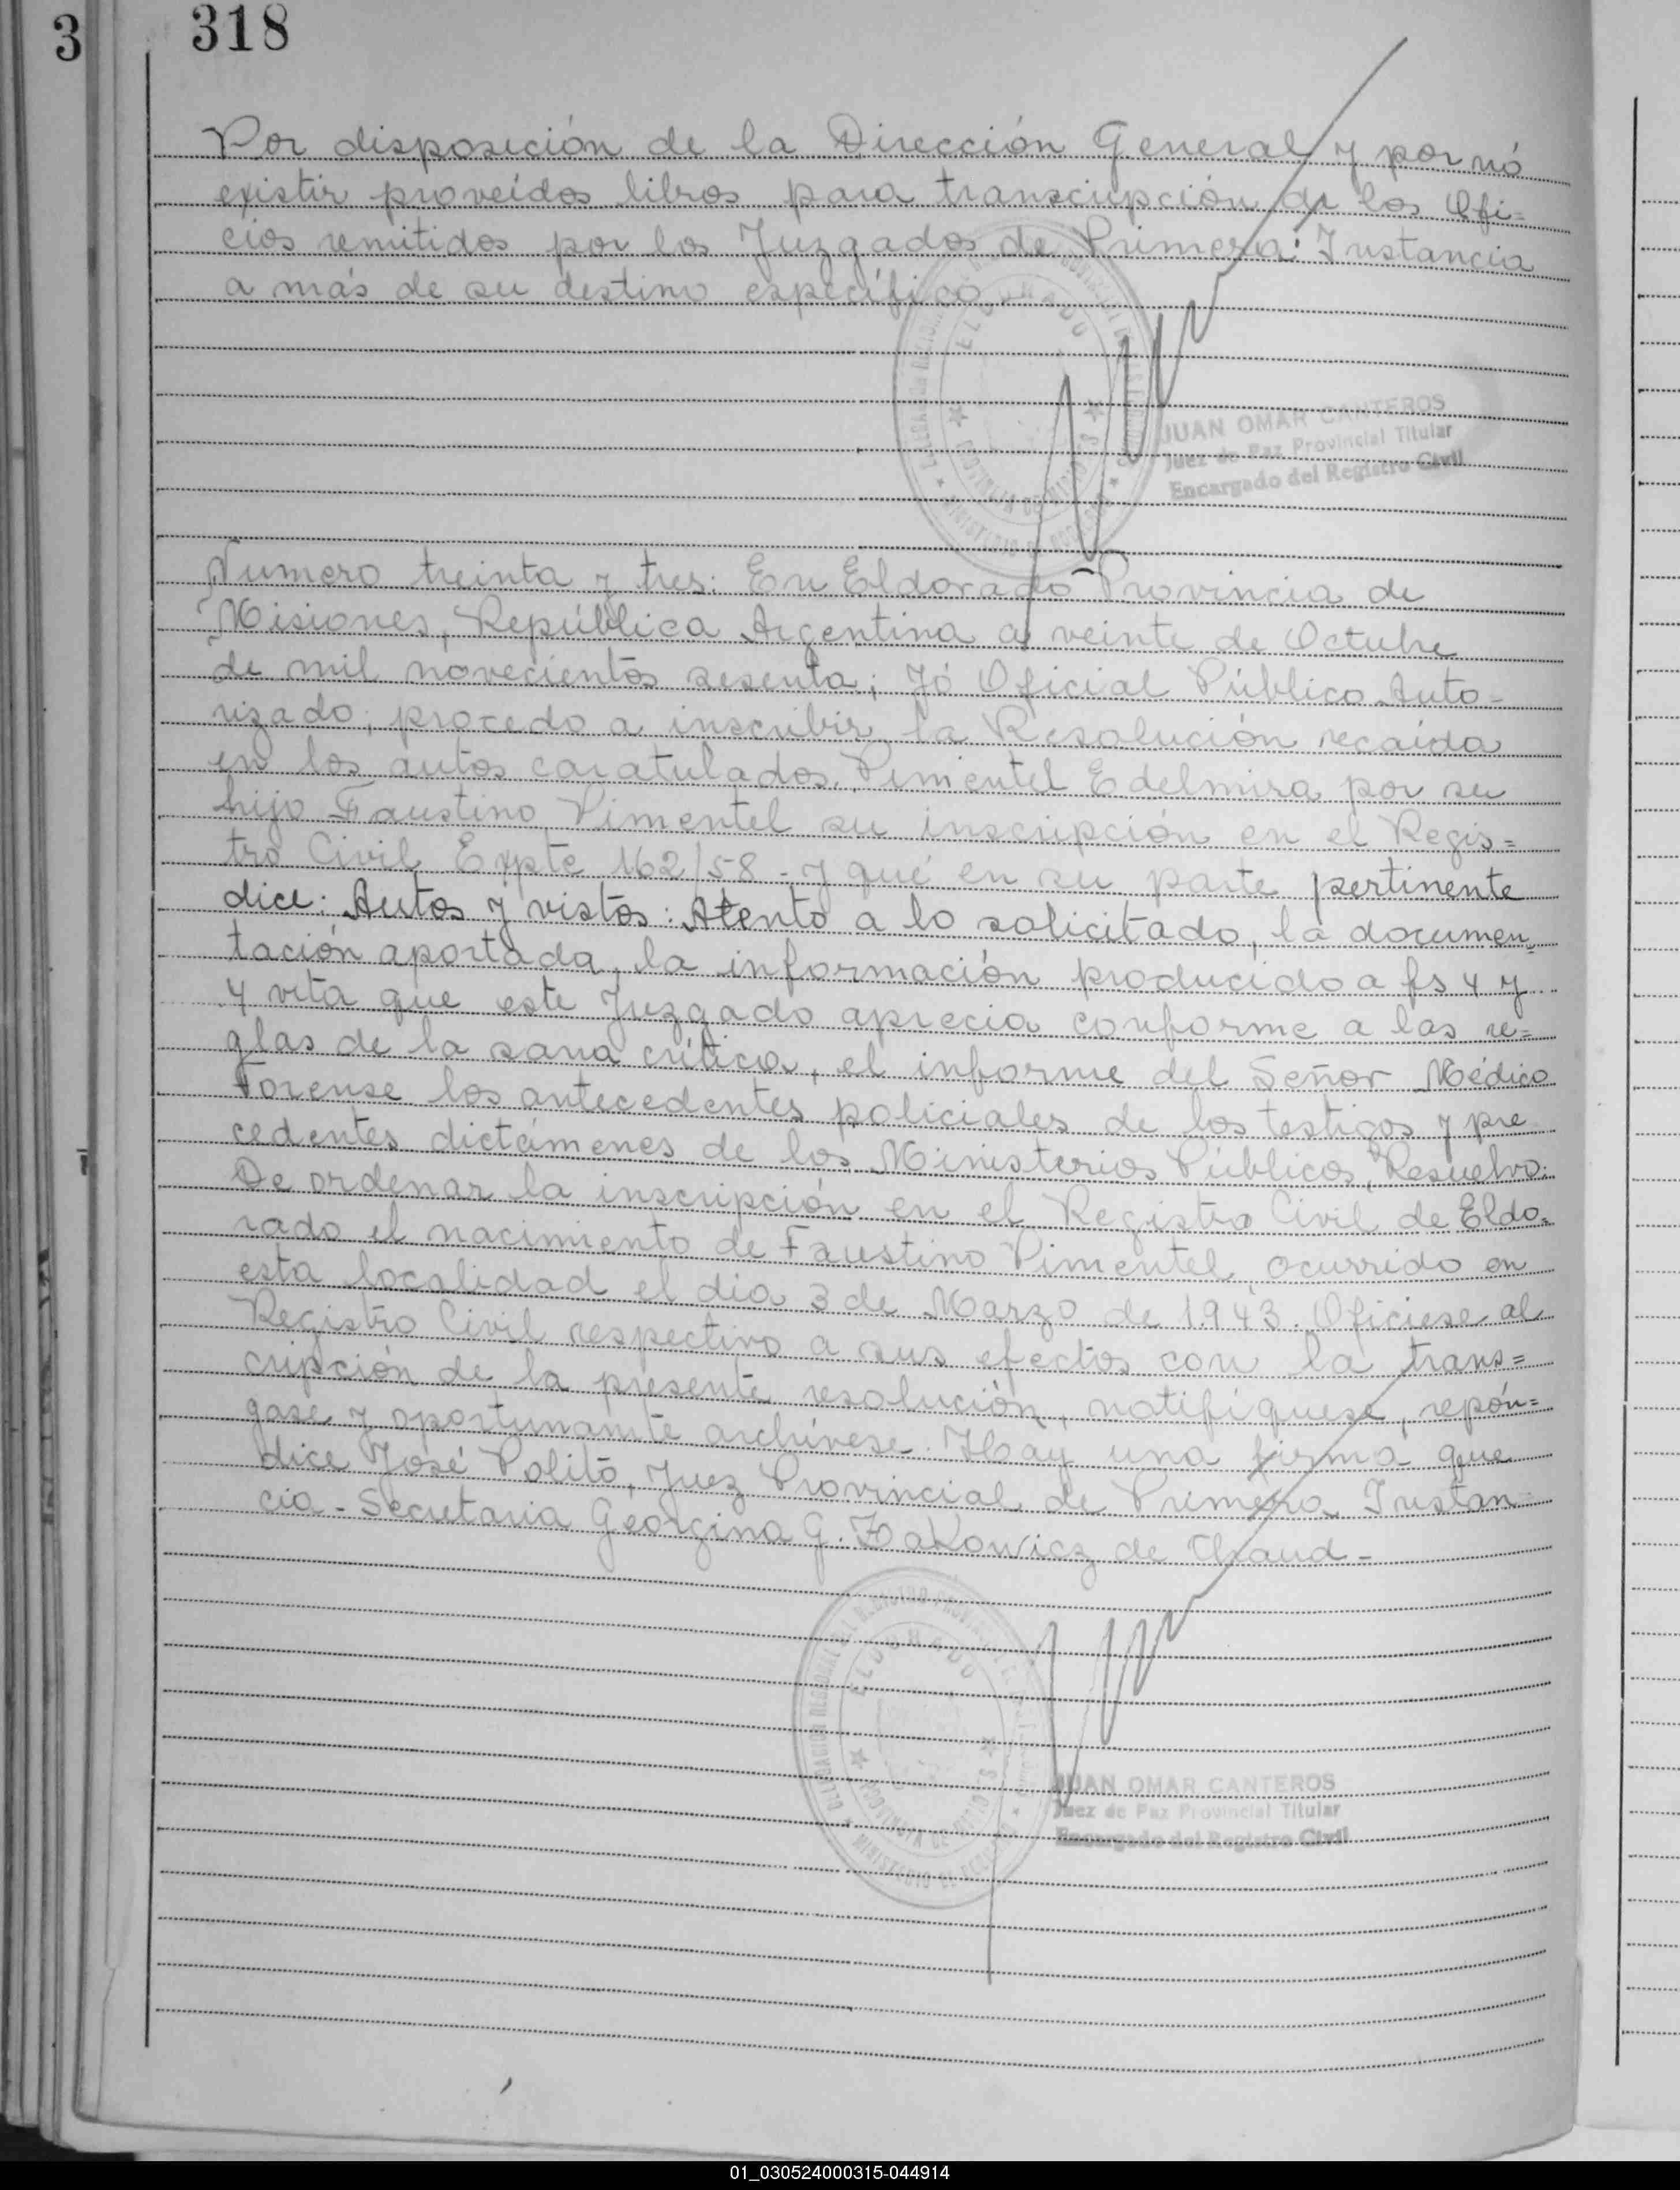 3
318
Por disposición de la Dirección General y por nó
existir proveídos libros para transcripción de los Ofi=
cios remitidos por los Juzgados de Primera Instancia
a más de su destino específico
ELDORADO
PROVINCIA DE MISIONES
JUAN OMAR CANTEROS
Juez de Paz Provincial Titular
Encargado del Registro Civil
Numero treinta y tres: En Eldorado Provincia de
Misiones, República Argentina a veinte de Octubre
de mil novecientos sesenta; Yó Oficial Público Auto-
rizado, procedo a inscribir la Resolución recaída
en los autos caratulados. Pimentel Edelmira por su
hijo Faustino Pimentel su inscripción en el Regis=
tro Civil Expte 162/58 - y que en su parte pertinente
dice: Autos y vistos: Atento a lo solicitado, la documen=
tación aportada, la información producido a fs 4 y
4 vta que este Juzgado aprecia conforme a las re=
glas de la sana crítica, el informe del Señor Médico
Forense los antecedentes policiales de los testigos y pre
cedentes dictámenes de los Ministerios Públicos, Resuelvo:
De ordenar la inscripción en el Registro Civil de Eldo=
rado el nacimiento de Faustino Pimentel, ocurrido en
esta localidad el día 3 de Marzo de 1.943. Ofíciese al
Registro Civil respectivo a sus efectos con la trans=
cripción de la presente resolución, notifíquese, repón=
gase y oportunamte archívese. Hay una firma que
dice José Polito, Juez Provincial de Primera Instan=
cia - Secretaria Georgina G. Zakowicz de
ELDORADO
PROVINCIA DE MISIONES
JUAN OMAR CANTEROS
Juez de Paz Provincial Titular
Encargado del Registro Civil
01_030524000315-044914